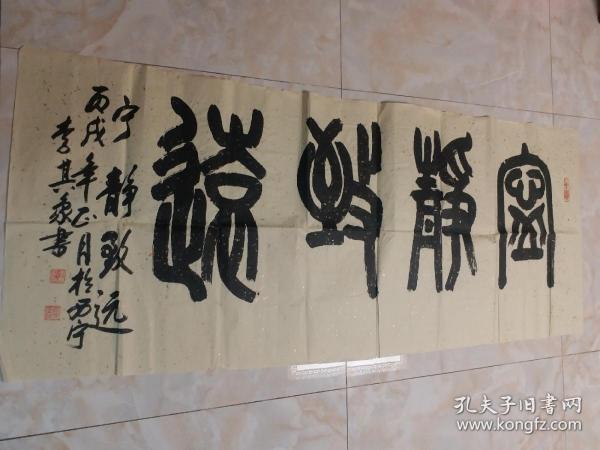 寧靜致遠
宁静致远
丙戌年正月於西宁
李其彖书
孔夫子旧书网
www.kongfz.com